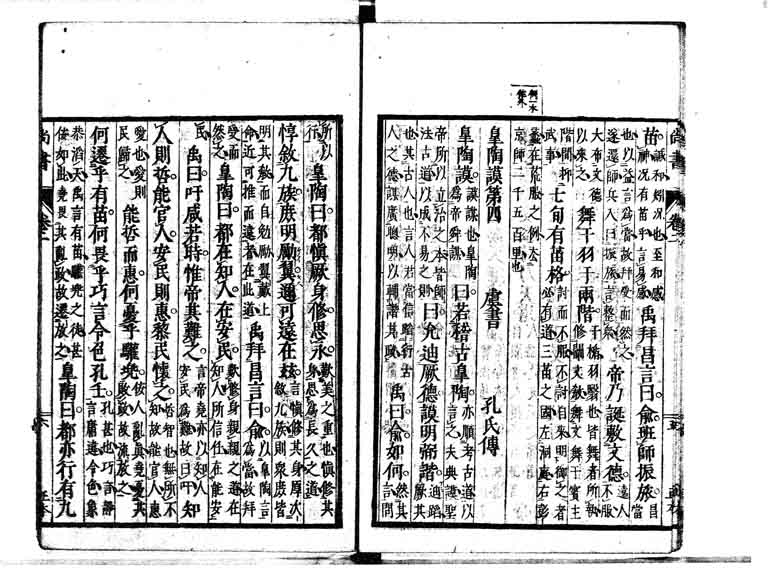 例一本
作外
尚書 卷二
苗。誠和矧況也至和感神況有苗乎言易感。禹拜昌言曰兪班師振旅。昌當
也以益言爲當故拜受而然之遂還師兵入曰振旅言整衆 帝乃誕敷文德。遠人不服
大布文德以來之 舞干羽于兩階。干楯羽翳也皆舞者所執修闡文教舞文舞于賓主
階間抑武事 七旬有苗格。討而不服不討自來明御之者必有道三苗之國左洞庭右彭
蠡在荒服之例去京師二千五百里也
皐陶謨第四 虞書 孔氏傳
皐陶謨。謨謀也皐陶爲帝舜謀 曰若稽古皐陶。亦順考古道以言之夫典謨聖
帝所以立治之本皆師法古道以成不易之則 曰允迪厥德謨明弼諧。迪蹈厥其
也其古人也言人君當信蹈行古人之德謀廣聰明以輔諧其政 禹曰兪如何。然其言問
所以行 皐陶曰都愼厥身修思永。歎美之重也愼修其身思爲長久之道
惇敘九族庶明勵翼邇可遠在玆。言愼修其身厚次敘九族則衆庶皆
明其教而自勉勵翼戴上命近可推而遠者在此道 禹拜昌言曰兪。以皐陶言爲當故拜
受而然之 皐陶曰都在知人在安民。歎修身親親之道在知人所信任在能安
民 禹曰吁咸若時惟帝其難之。言帝堯亦以知人安民爲難故曰吁 知
人則哲能官人安民則惠黎民懷之。哲智也無所不知故能官人惠
愛也愛則民歸之 能哲而惠何憂乎驩兜。佞人亂真堯憂其敗政故流放之
何遷乎有苗何畏乎巧言令色孔壬。孔甚也巧言靜言庸違令色象
恭滔天禹言有苗驩兜之徒甚佞如此堯畏其亂政故遷放之 皐陶曰都亦行有九
尚書 卷二